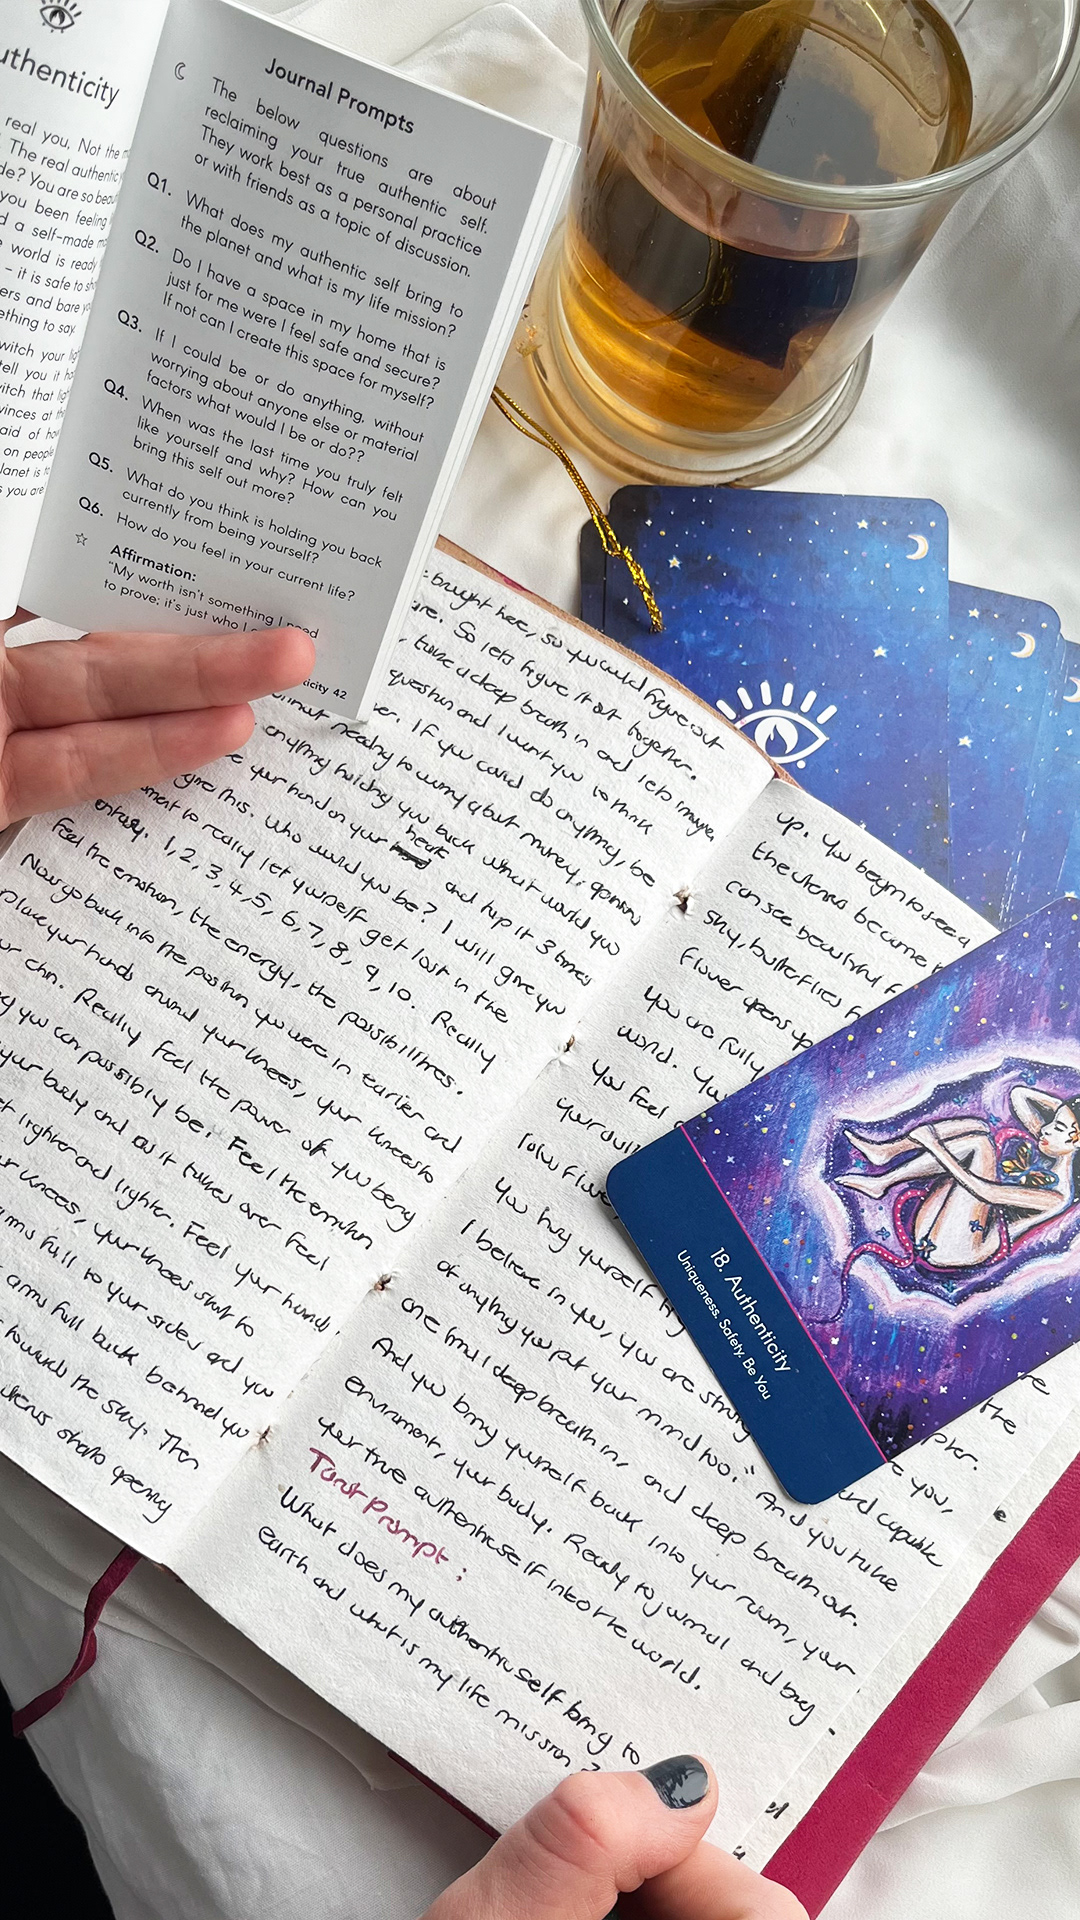 uthenticity
real you. Not the
The real authentic
de? You are so beau
you been feeling
d a self-made
world is ready
– it is safe to sh
ers and bare yo
ething to say.
witch your lig
tell you it ha
itch that lig
vinces at th
aid of ho
on people
lanet is
s you are
Journal Prompts
The below questions are about
reclaiming your true authentic self.
They work best as a personal practice
or with friends as a topic of discussion.
Q1. What does my authentic self bring to
the planet and what is my life mission?
Q2. Do I have a space in my home that is
just for me were I feel safe and secure?
If not can I create this space for myself?
Q3. If I could be or do anything, without
worrying about anyone else or material
factors what would I be or do??
Q4. When was the last time you truly felt
like yourself and why? How can you
bring this self out more?
Q5. What do you think is holding you back
currently from being yourself?
Q6. How do you feel in your current life?
Affirmation:
"My worth isn't something I need
to prove; it's just who I
ticity 42
brought here, so you could figure out
are. So lets figure it out together.
, take a deep breath in and lets imagine
question and I want you to think
er. If you could do anything, be
without needing to worry about money, opinions
anything holding you back what would you
e your hand on your heart and tap it 3 times
give this. Who would you be? I will give you
ment to really let yourself get lost in the
entasy. 1, 2, 3, 4, 5, 6, 7, 8, 9, 10. Really
Feel the emotion, the energy, the possibilities.
Now go back into the position you were in earlier and
place your hands around your knees, your knees to
ur chin. Really feel the power of you being
you can possibly be. Feel the emotion
your body and as it takes over feel
lighter and lighter. Feel your hands,
ur knees, your knees start to
arms fall to your sides and you
arms fall back behind you
towards the sky. The
uterus starts opening
up. You begin to see a
the uterus became
can see beautiful f
sky, butterflies f
flower opens up
You are fully
world. You
You feel
your
You hug yourself
I believe in you, you are strong
and capable
of anything you put your mind too." And you take
one final deep breath in, and deep breath out.
And you bring yourself back into your room, your
enviroment, your body. Ready to journal and bring
your true authentic self into the world.
Tarot Prompt:
What does my authentic self bring to
earth and what is my life mission?
18. Authenticity
Uniqueness. Safety. Be You
the
you,